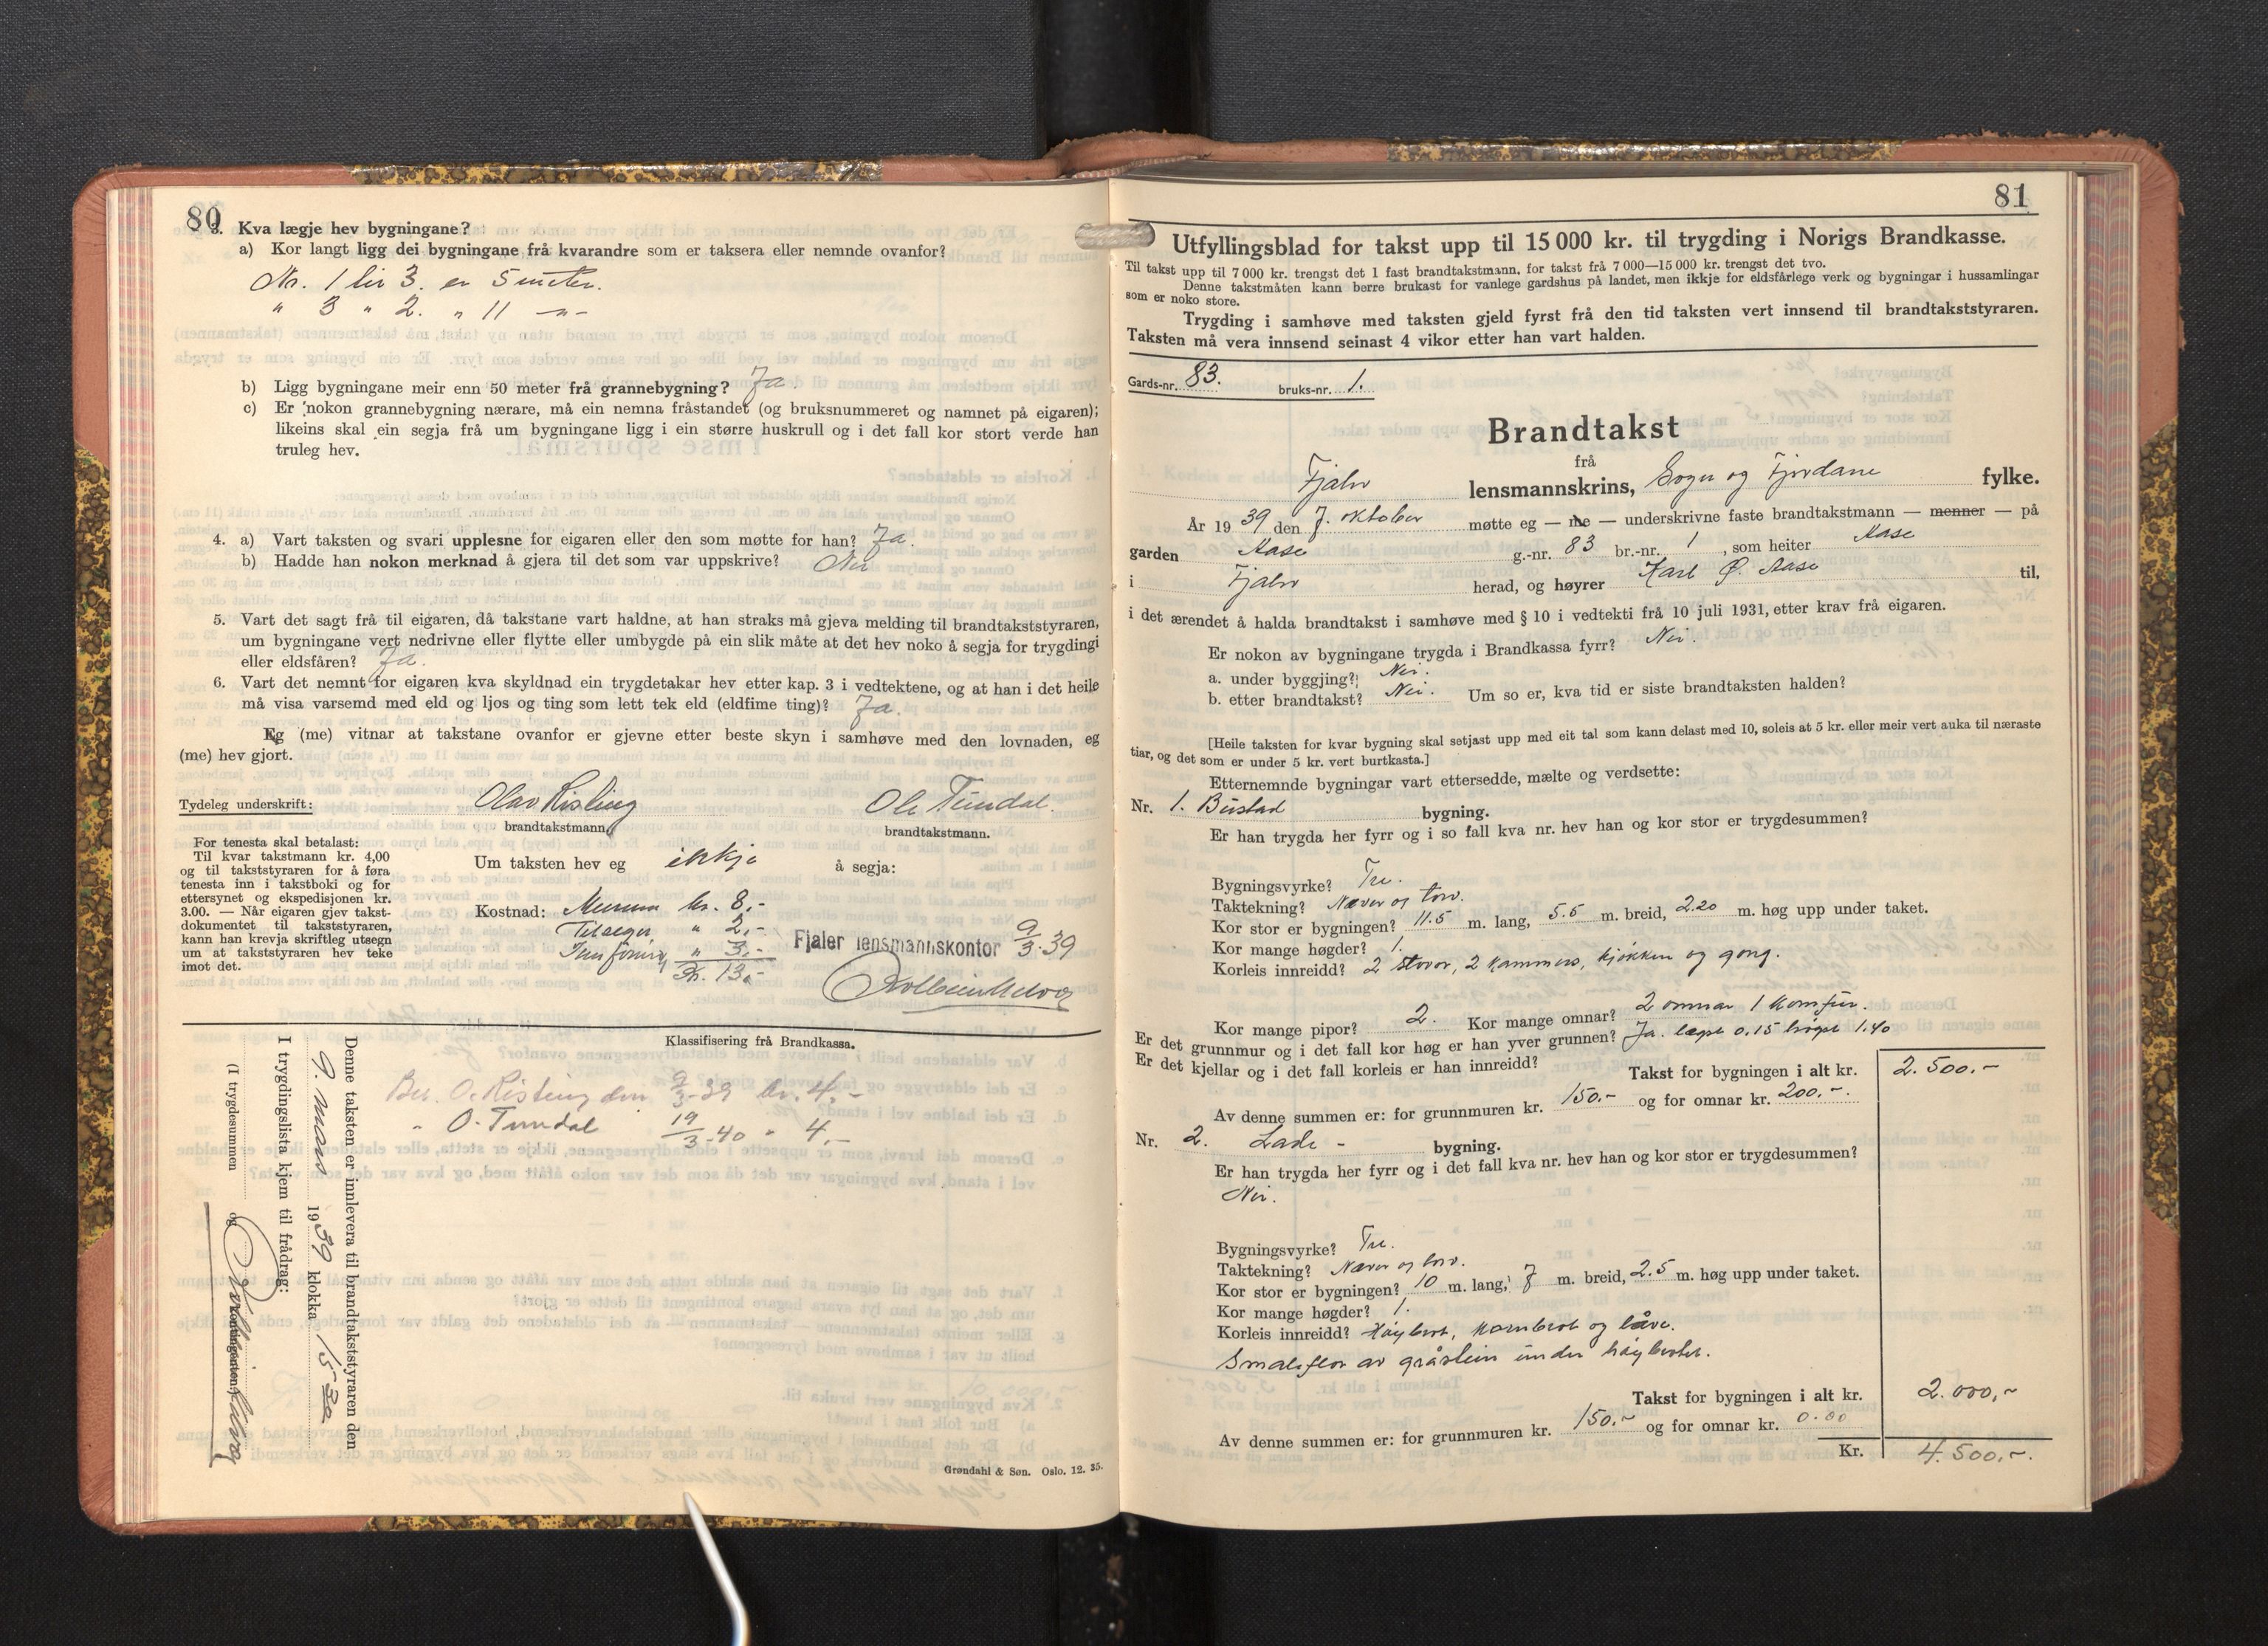 80
3. Kva lægje hev bygningane?
a) Kor langt ligg dei bygningane frå kvarandre som er taksera eller nemnde ovanfor?
Nr. 1 til 3. er 5 meter.
" 3 " 2. " 11 —"—
b) Ligg bygningane meir enn 50 meter frå grannebygning? Ja.
c) Er nokon grannebygning nærare, må ein nemna fråstandet (og bruksnummeret og namnet på eigaren);
likeins skal ein segja frå um bygningane ligg i ein større huskrull og i det fall kor stort verde han
truleg hev.
4. a) Vart taksten og svari upplesne for eigaren eller den som møtte for han? Ja.
b) Hadde han nokon merknad å gjera til det som var uppskrive? Nei
5. Vart det sagt frå til eigaren, då takstane vart haldne, at han straks må gjeva melding til brandtakststyraren,
um bygningane vert nedrivne eller flytte eller umbygde på ein slik måte at det hev noko å segja for trygdingi
eller eldsfåren? Ja.
6. Vart det nemnt for eigaren kva skyldnad ein trygdetakar hev etter kap. 3 i vedtektene, og at han i det heile
må visa varsemd med eld og ljos og ting som lett tek eld (eldfime ting)? Ja.
Eg (me) vitnar at takstane ovanfor er gjevne etter beste skyn i samhøve med den lovnaden, eg
(me) hev gjort.
Tydeleg underskrift: Olav Risting Ole Tundal.
brandtakstmann. brandtakstmann.
For tenesta skal betalast:
Til kvar takstmann kr. 4,00
og til takststyraren for å føra
tenesta inn i takstboki og for
ettersynet og ekspedisjonen kr.
3.00. — Når eigaren gjev takst-
dokumentet til takststyraren,
kann han krevja skriftleg utsegn
um at takststyraren hev teke
imot det.
Um taksten hev eg ikkje å segja:
Kostnad: kr. 8,-
" 2,-
Innføring " 3,-
Kr. 13,-
Fjaler lensmannskontor 9/3-39
Klassifisering frå Brandkassa.
Bet. O. Risting den 9/3-39 kr. 4,-
" O. Tundal 19/3-40 " 4,-
Denne taksten er innlevera til brandtakststyraren den
9. mars 1939 klokka 15 30
I trygdingslista kjem til frådrag:
(I trygdesummen og kontingenten)
Grøndahl & Søn. Oslo. 12. 35.
81
Utfyllingsblad for takst upp til 15 000 kr. til trygding i Norigs Brandkasse.
Til takst upp til 7 000 kr. trengst det 1 fast brandtakstmann, for takst frå 7 000—15 000 kr. trengst det tvo.
Denne takstmåten kann berre brukast for vanlege gardshus på landet, men ikkje for eldsfårlege verk og bygningar i hussamlingar
som er noko store.
Trygding i samhøve med taksten gjeld fyrst frå den tid taksten vert innsend til brandtakststyraren.
Taksten må vera innsend seinast 4 vikor etter han vart halden.
Gards-nr. 83. bruks-nr. 1.
Brandtakst
frå
Fjaler lensmannskrins, Sogn og Fjordane fylke.
År 1939 den 7. oktober møtte eg — me — underskrivne faste brandtakstmann — menner — på
garden Aase g.-nr. 83 br.-nr. 1, som heiter Aase
i Fjaler herad, og høyrer Karl Ø. Aase til,
i det ærendet å halda brandtakst i samhøve med § 10 i vedtekti frå 10 juli 1931, etter krav frå eigaren.
Er nokon av bygningane trygda i Brandkassa fyrr? Nei.
a. under byggjing? Nei.
b. etter brandtakst? Nei. Um so er, kva tid er siste brandtaksten halden?
[Heile taksten for kvar bygning skal setjast upp med eit tal som kann delast med 10, soleis at 5 kr. eller meir vert auka til næraste
tiar, og det som er under 5 kr. vert burtkasta.]
Etternemnde bygningar vart ettersedde, mælte og verdsette:
Nr. 1. Bustad bygning.
Er han trygda her fyrr og i so fall kva nr. hev han og kor stor er trygdesummen?
Bygningsvyrke? Tre.
Taktekning? Næver og torv.
Kor stor er bygningen? 11.5 m. lang, 5.5 m. breid, 2.20 m. høg upp under taket.
Kor mange høgder? 1.
Korleis innreidd? 2 stovor, 2 kammers, kjøkken og gong.
Kor mange pipor? 2. Kor mange omnar? 2 omnar 1 komfur.
Er det grunnmur og i det fall kor høg er han yver grunnen? Ja. lægst 0.15 høgst 1.40
Er det kjellar og i det fall korleis er han innreidd?
Takst for bygningen i alt kr. 2.500.-
Av denne summen er: for grunnmuren kr. 150.- og for omnar kr. 200.-
Nr. 2. Lade- bygning.
Er han trygda her fyrr og i det fall kva nr. hev han og kor stor er trygdesummen?
Nei.
Bygningsvyrke? Tre.
Taktekning? Næver og torv.
Kor stor er bygningen? 10 m. lang, 7 m. breid, 2.5 m. høg upp under taket.
Kor mange høgder? 1.
Korleis innreidd? Høybrot, kornbrot og låve.
Smaleflor av gråstein under høybrotet.
Takst for bygningen i alt kr. 2.000,-
Av denne summen er: for grunnmuren kr. 150.- og for omnar kr. 0.00
Kr. 4.500,-.